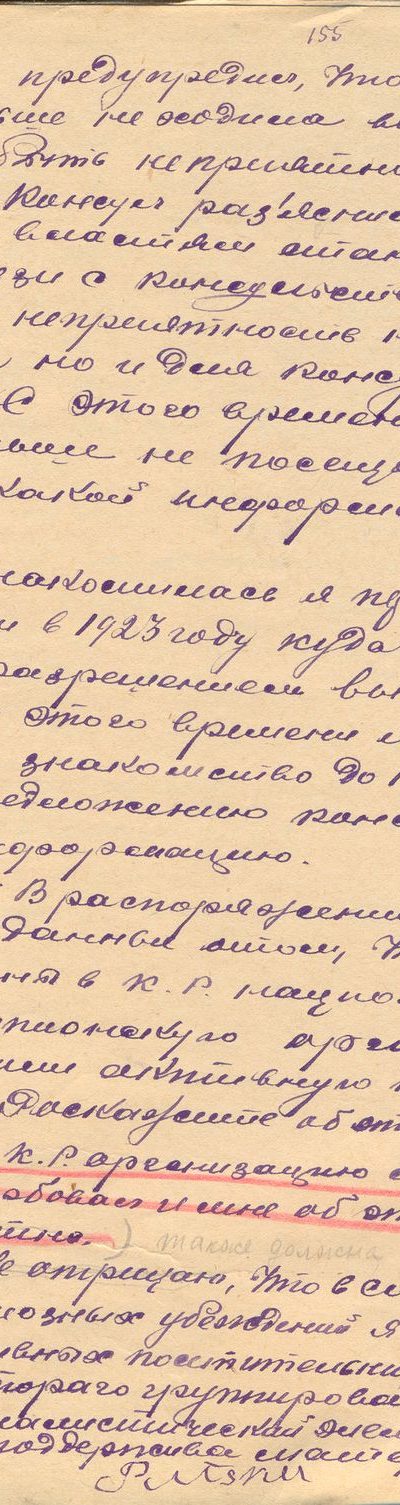 155
предупредил, что
ьше не ходила в
быть неприятно
Консул раз'яснил
властям стан
язи с консульств
неприятность н
но и для конс
С этого времен
льше не посещ
какой информ
накомилась я
и в 1923 году куда
разрешением вы
этого времени
знакомство до
едложению конс
нформацию.
В распоряжении
данные о том,
ны в К.Р. нацио
пионскую орг
ли активную
Расскажите об эт
К.Р. организацию
обовал и мне об эт
стно. ) также должна
е отрицаю, что в с
иозных убеждений я
ивных посетительни
торого группирова
налистический элем
поддержива мате